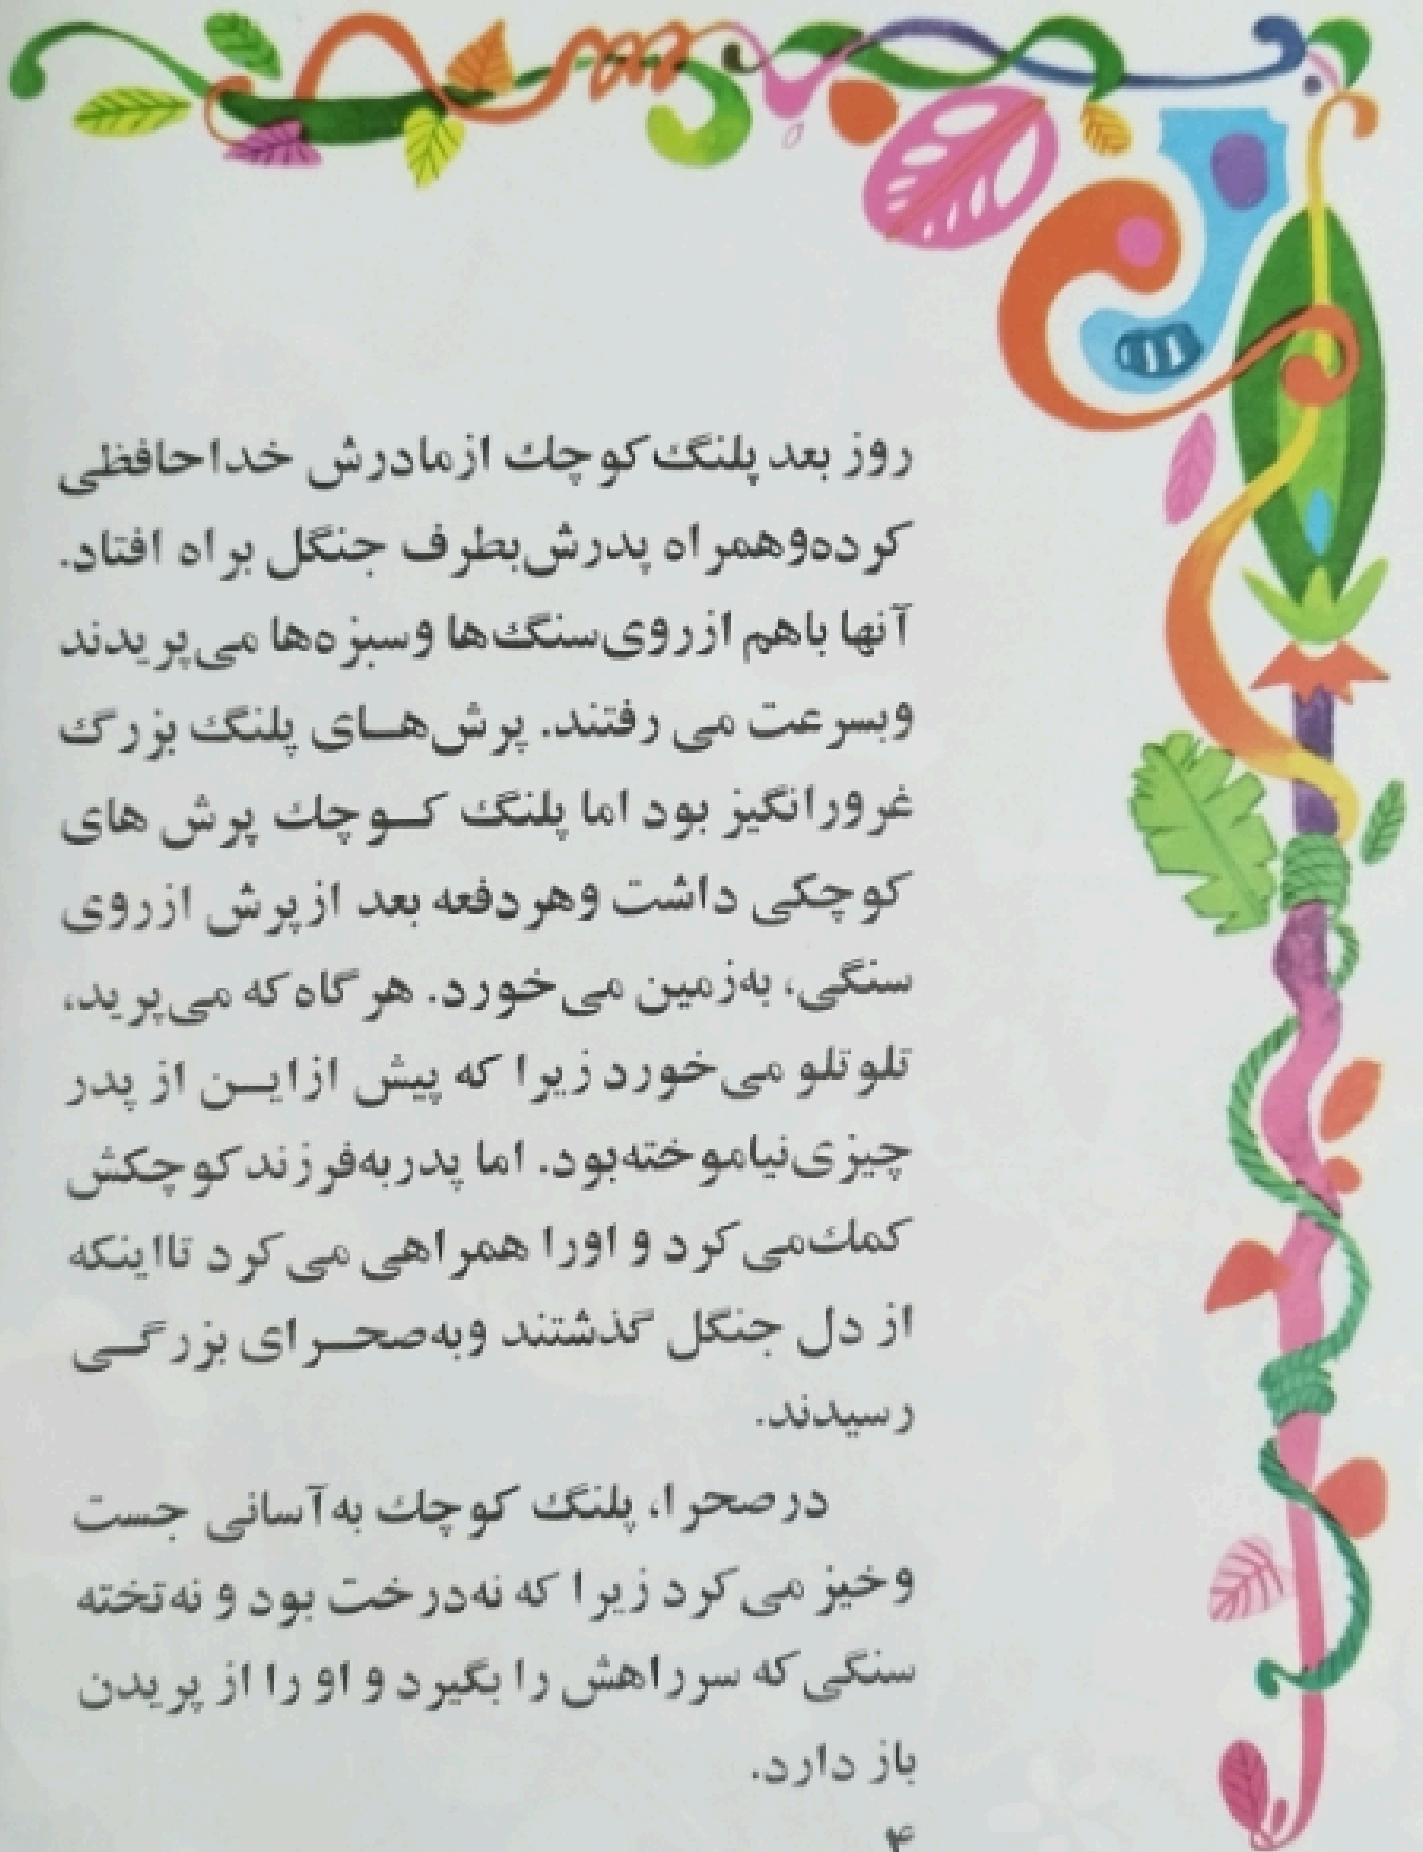 روز بعد پلنگ کوچك از مادرش خداحافظی
کرده و همراه پدرش بطرف جنگل براه افتاد.
آنها باهم از روی سنگ‌ها و سبزه‌ها می‌پریدند
و بسرعت می رفتند. پرش‌هـای پلنگ بزرگ
غرورانگیز بود اما پلنگ کـوچك پرش های
کوچکی داشت و هر دفعه بعد از پرش از روی
سنگی، به زمین می‌خورد. هرگاه که می‌پرید،
تلوتلو می‌خورد زیرا که پیش از ایـن از پدر
چیزی نیاموخته بود. اما پدر به فرزند کوچکش
کمك می‌کرد و او را همراهی می‌کرد تا اینکه
از دل جنگل گذشتند و به صحـرای بزرگـی
رسیدند.
در صحرا، پلنگ کوچك به آسانی جست
و خیز می‌کرد زیرا که نه درخت بود و نه تخته
سنگی که سر راهش را بگیرد و او را از پریدن
باز دارد.
۴